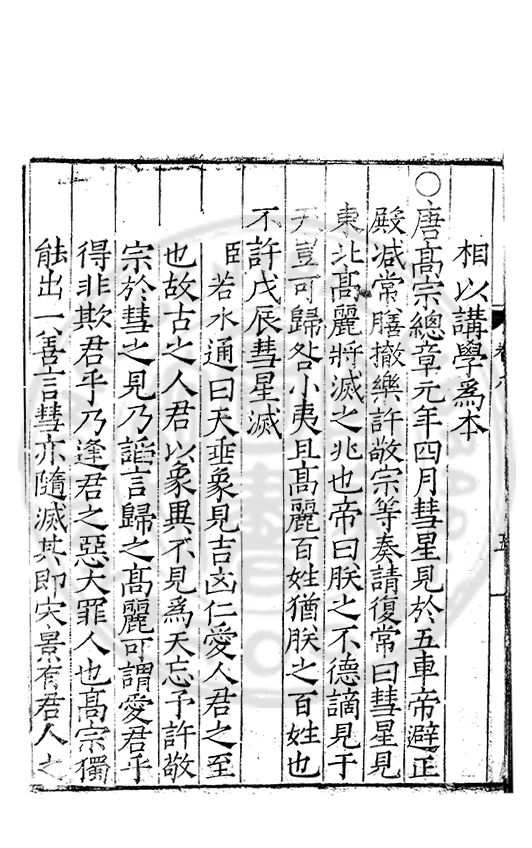 相以講學爲本
○唐髙宗總章元年四月彗星見於五車帝避正
殿减常膳撤樂許敬宗等奏請復常曰彗星見
東北髙麗將滅之兆也帝曰朕之不德謫見于
天豈可歸咎小夷且髙麗百姓猶朕之百姓也
不許戊辰彗星滅
臣若水通曰天垂象見吉凶仁愛人君之至
也故古之人君以象異不見爲天忘予許敬
宗於彗之見乃謟言歸之髙麗可謂愛君乎
得非欺君乎乃逢君之惡大罪人也髙宗獨
能出一善言彗亦隨滅其即宋景有君人之
卷八
五